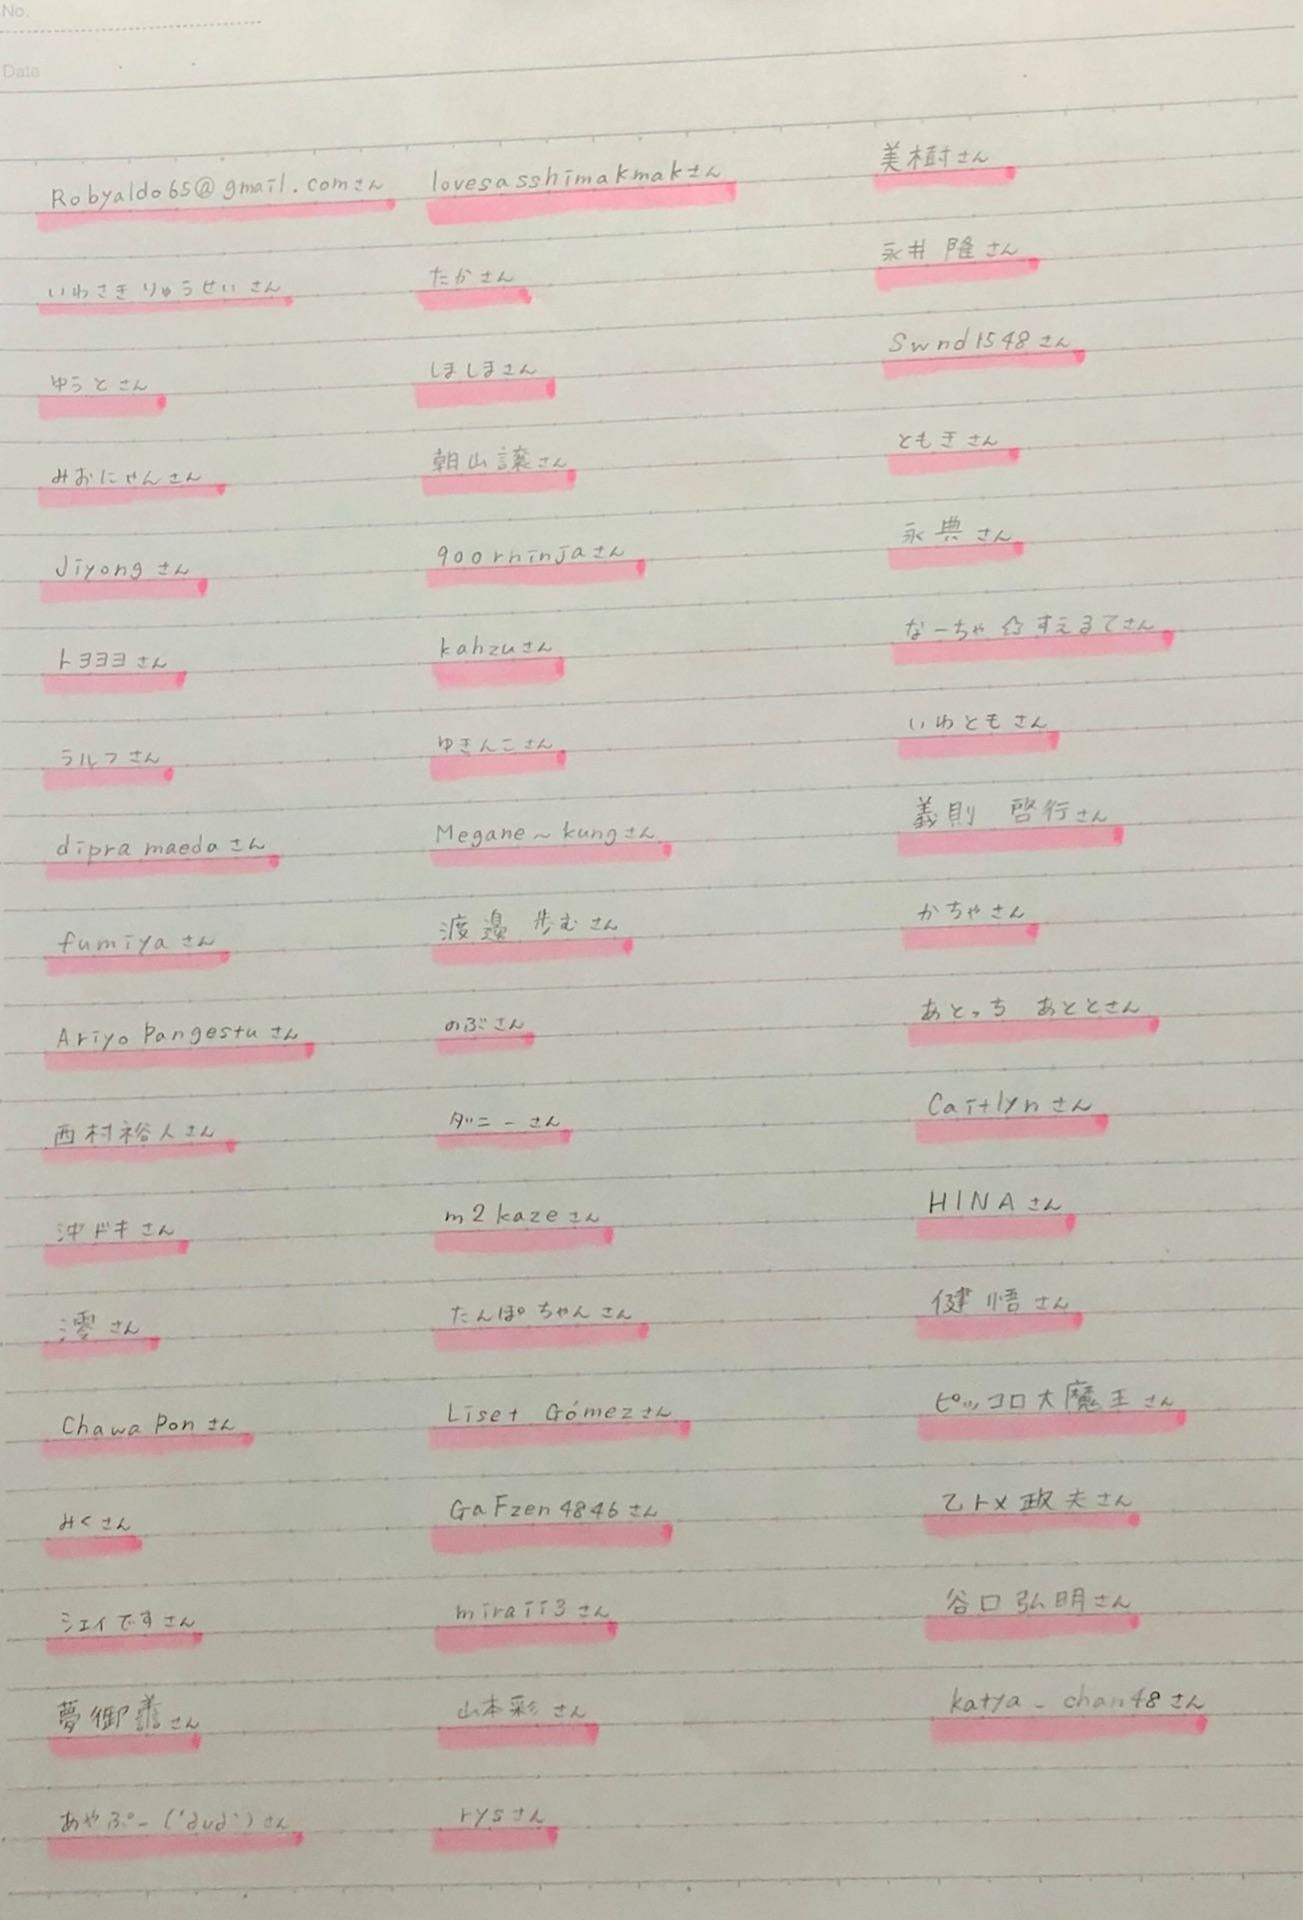 No.
Date
Robyaldo65@gmail.comさん
いわさきりゅうせいさん
ゆうとさん
みおにゃんさん
Jiyongさん
トヨヨヨさん
ラルフさん
dipra maedaさん
fumiyaさん
Ariyo Pangestuさん
西村裕人さん
沖ドキさん
澪さん
Chawa Ponさん
みくさん
シェイですさん
夢御さん
あやぷー('δuδ')さん
lovesasshimakmakさん
たかさん
しましまさん
朝山譲さん
900rninjaさん
kahzuさん
ゆきんこさん
Megane~kungさん
渡邊 歩むさん
のぶさん
ダニーさん
m2kazeさん
たんぽちゃんさん
Liset Gómezさん
GaFzen4846さん
miraii3さん
山本彩さん
rysさん
美樹さん
永井 隆さん
Swnd1548さん
ともきさん
永典さん
なーちゃ☆すえるてさん
いわともさん
義則 啓行さん
かちゃさん
あとっち あととさん
Caitlynさん
HINAさん
健悟さん
ピッコロ大魔王さん
乙トメ政夫さん
谷口弘明さん
katya_chan48さん